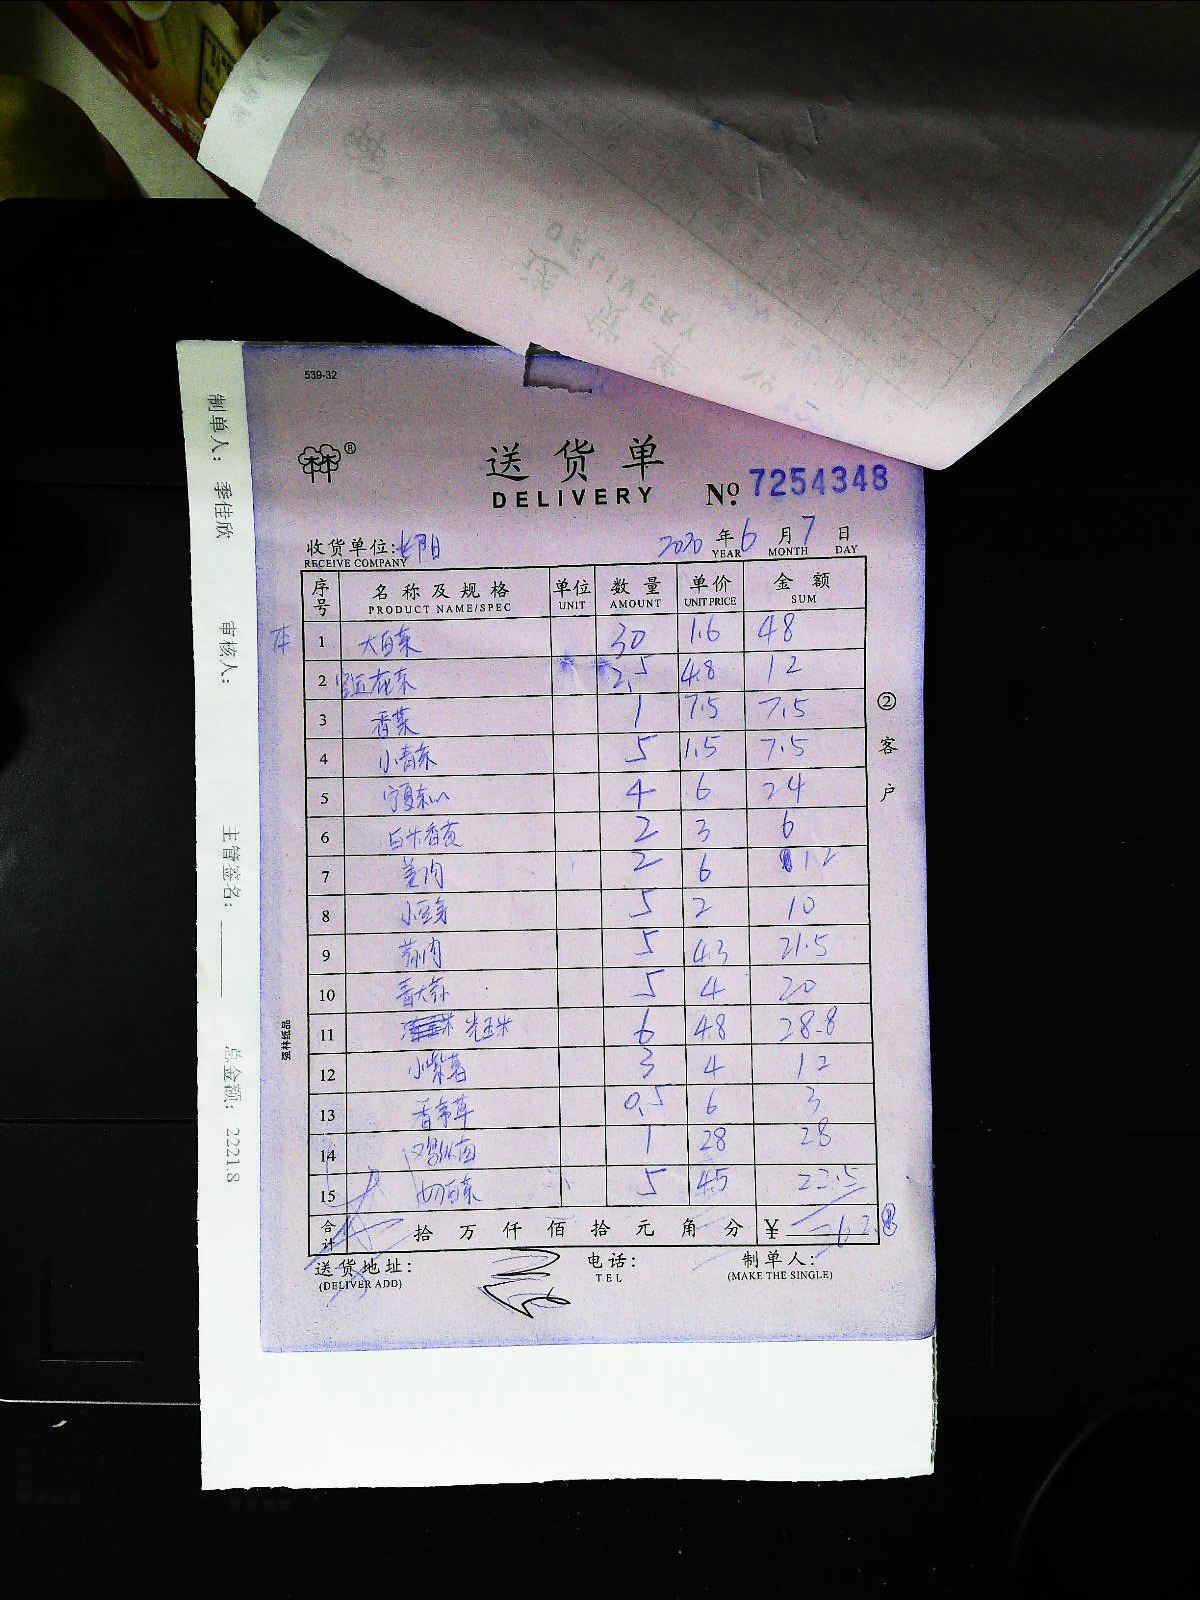 539-32
®
送货单
DELIVERY
No. 7254348
收货单位:
RECEIVE COMPANY
2020 年 6 月 7 日
YEAR MONTH DAY
序号 名称及规格 单位 数量 单价 金额
PRODUCT NAME/SPEC UNIT AMOUNT UNIT PRICE SUM
1 大白菜 30 1.6 48
2 2.5 4.8 12
3 香菜 1 7.5 7.5
4 小青菜 5 1.5 7.5
5 宁夏菜心 4 6 24
6 2 3 6
7 姜肉 2 6 12
8 5 2 10
9 5 4.3 21.5
10 5 4 20
11 光玉米 6 4.8 28.8
12 小紫薯 3 4 12
13 香茅草 0.5 6 3
14 1 28 28
15 5 4.5 22.5
合计 拾 万 仟 佰 拾 元 角 分 ¥
送货地址: 电话: 制单人:
(DELIVER ADD) TEL (MAKE THE SINGLE)
② 客户
强林纸品
制单人: 季佳欣 审核人: 主管签名: 总金额: 2221.8
DELIVERY